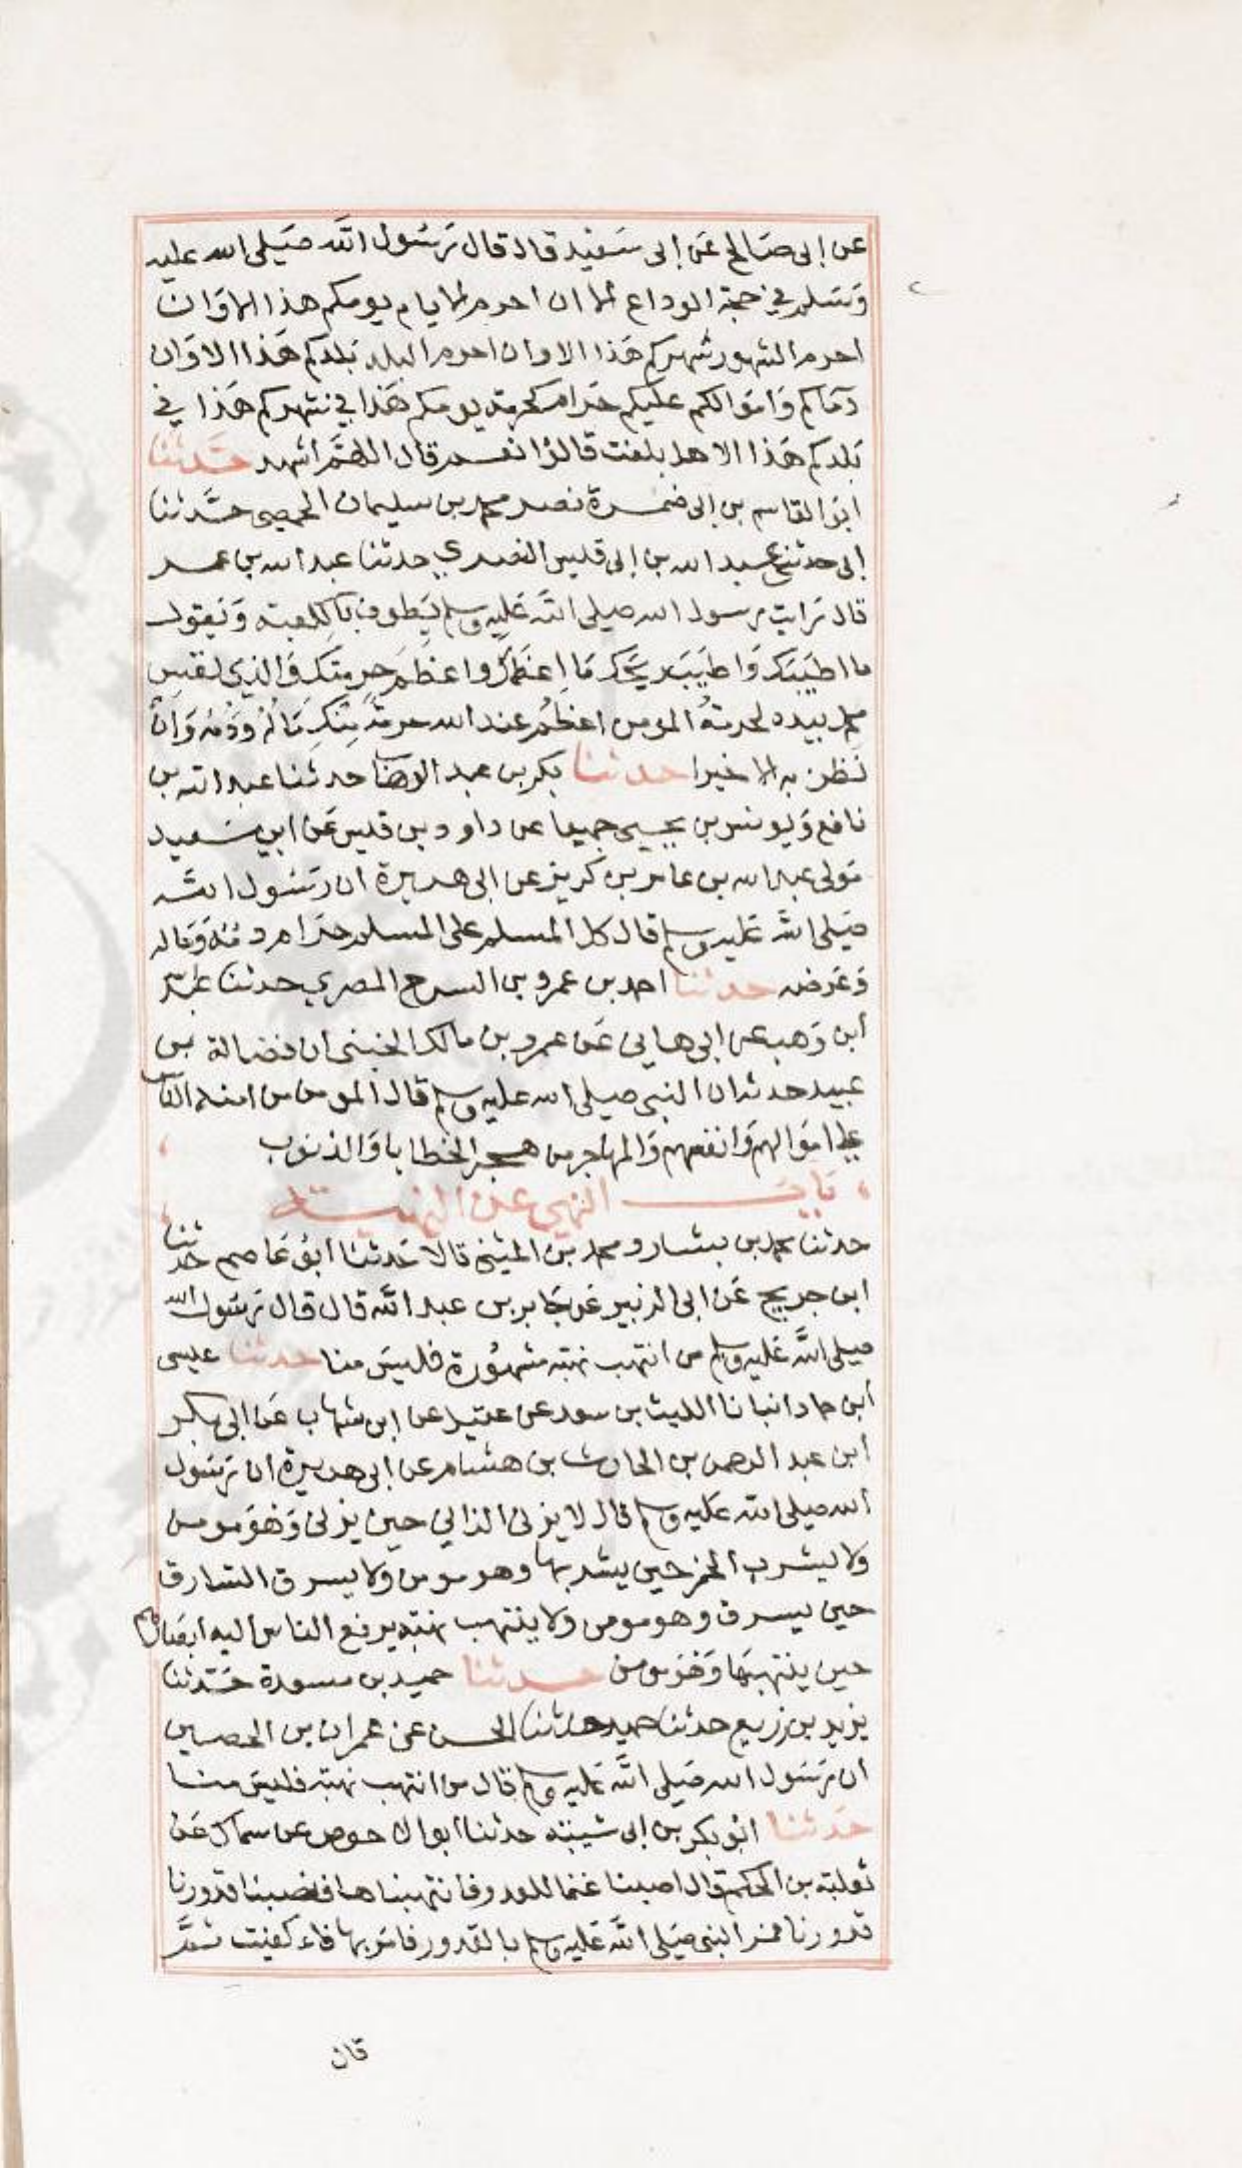 عن ابى صالح عن ابى سعيد قال قال رسول الله صلى الله عليه
وسلم في حجة الوداع الا ان احرم الايام يومكم هذا الا وان
احرم الشهور شهركم هذا الا وان احرم البلد بلدكم هذا الا وان
دماكم واموالكم عليكم حرام كحرمة يومكم هذا في شهركم هذا في
بلدكم هذا الا هل بلغت قالوا نعم قال اللهم اشهد حدثنا
ابو القاسم بن ابى ضمرة نصر محمد بن سليمان الحمصي حدثنا
ابى حدثنا عبد الله بن ابى قيس النصري حدثنا عبد الله بن عمر
قال رايت رسول الله صلى الله عليه وسلم يطوف بالكعبة ويقول
ما اطيبك واطيب ريحك ما اعظمك واعظم حرمتك والذي نفس
محمد بيده لحرمة المومن اعظم عند الله حرمة منك ماله ودمه وان
نظن به الا خيرا حدثنا بكر بن عبد الوهاب حدثنا عبد الله بن
نافع ويونس بن يحيى جميعا عن داود بن قيس عن ابي سعيد
مولى عبد الله بن عامر بن كريز عن ابى هريرة ان رسول الله
صلى الله عليه وسلم قال كل المسلم على المسلم حرام دمه وماله
وعرضه حدثنا احمد بن عمرو بن السرح المصري حدثنا
ابن وهب عن ابى هاني عن عمرو بن مالك الجنبى ان فضالة بن
عبيد حدثه ان النبى صلى الله عليه وسلم قال المومن من امنه الناس
على اموالهم وانفسهم والمهاجر من هجر الخطايا والذنوب
باب النهي عن النهبة
حدثنا محمد بن بشار ومحمد بن المثنى قالا حدثنا ابو عاصم حدثنا
ابن جريج عن ابى الزبير عن جابر بن عبد الله قال قال رسول الله
صلى الله عليه وسلم من انتهب نهبة مشهورة فليس منا حدثنا عيسى
ابن حماد انبانا الليث بن سعد عن عقيل عن ابن شهاب عن ابى بكر
ابن عبد الرحمن بن الحارث بن هشام عن ابى هريرة ان رسول
الله صلى الله عليه وسلم قال لا يزنى الزاني حين يزنى وهو مومن
ولا يشرب الخمر حين يشربها وهو مومن ولا يسرق السارق
حين يسرق وهو مومن ولا ينتهب نهبة يرفع الناس اليه ابصارهم
حين ينتهبها وهو مومن حدثنا حميد بن مسعدة حدثنا
يزيد بن زريع حدثنا حميد حدثنا الحسن عن عمران بن الحصين
ان رسول الله صلى الله عليه وسلم قال من انتهب نهبة فليس منا
حدثنا ابو بكر بن ابى شيبة حدثنا ابو الاحوص عن سماك عن
ثعلبة بن الحكم قال اصبنا غنما للعدو فانتهبناها فنصبنا قدورنا
قدورنا فمر النبى صلى الله عليه وسلم بالقدور فامر بها فاءكفيت ثم
قال